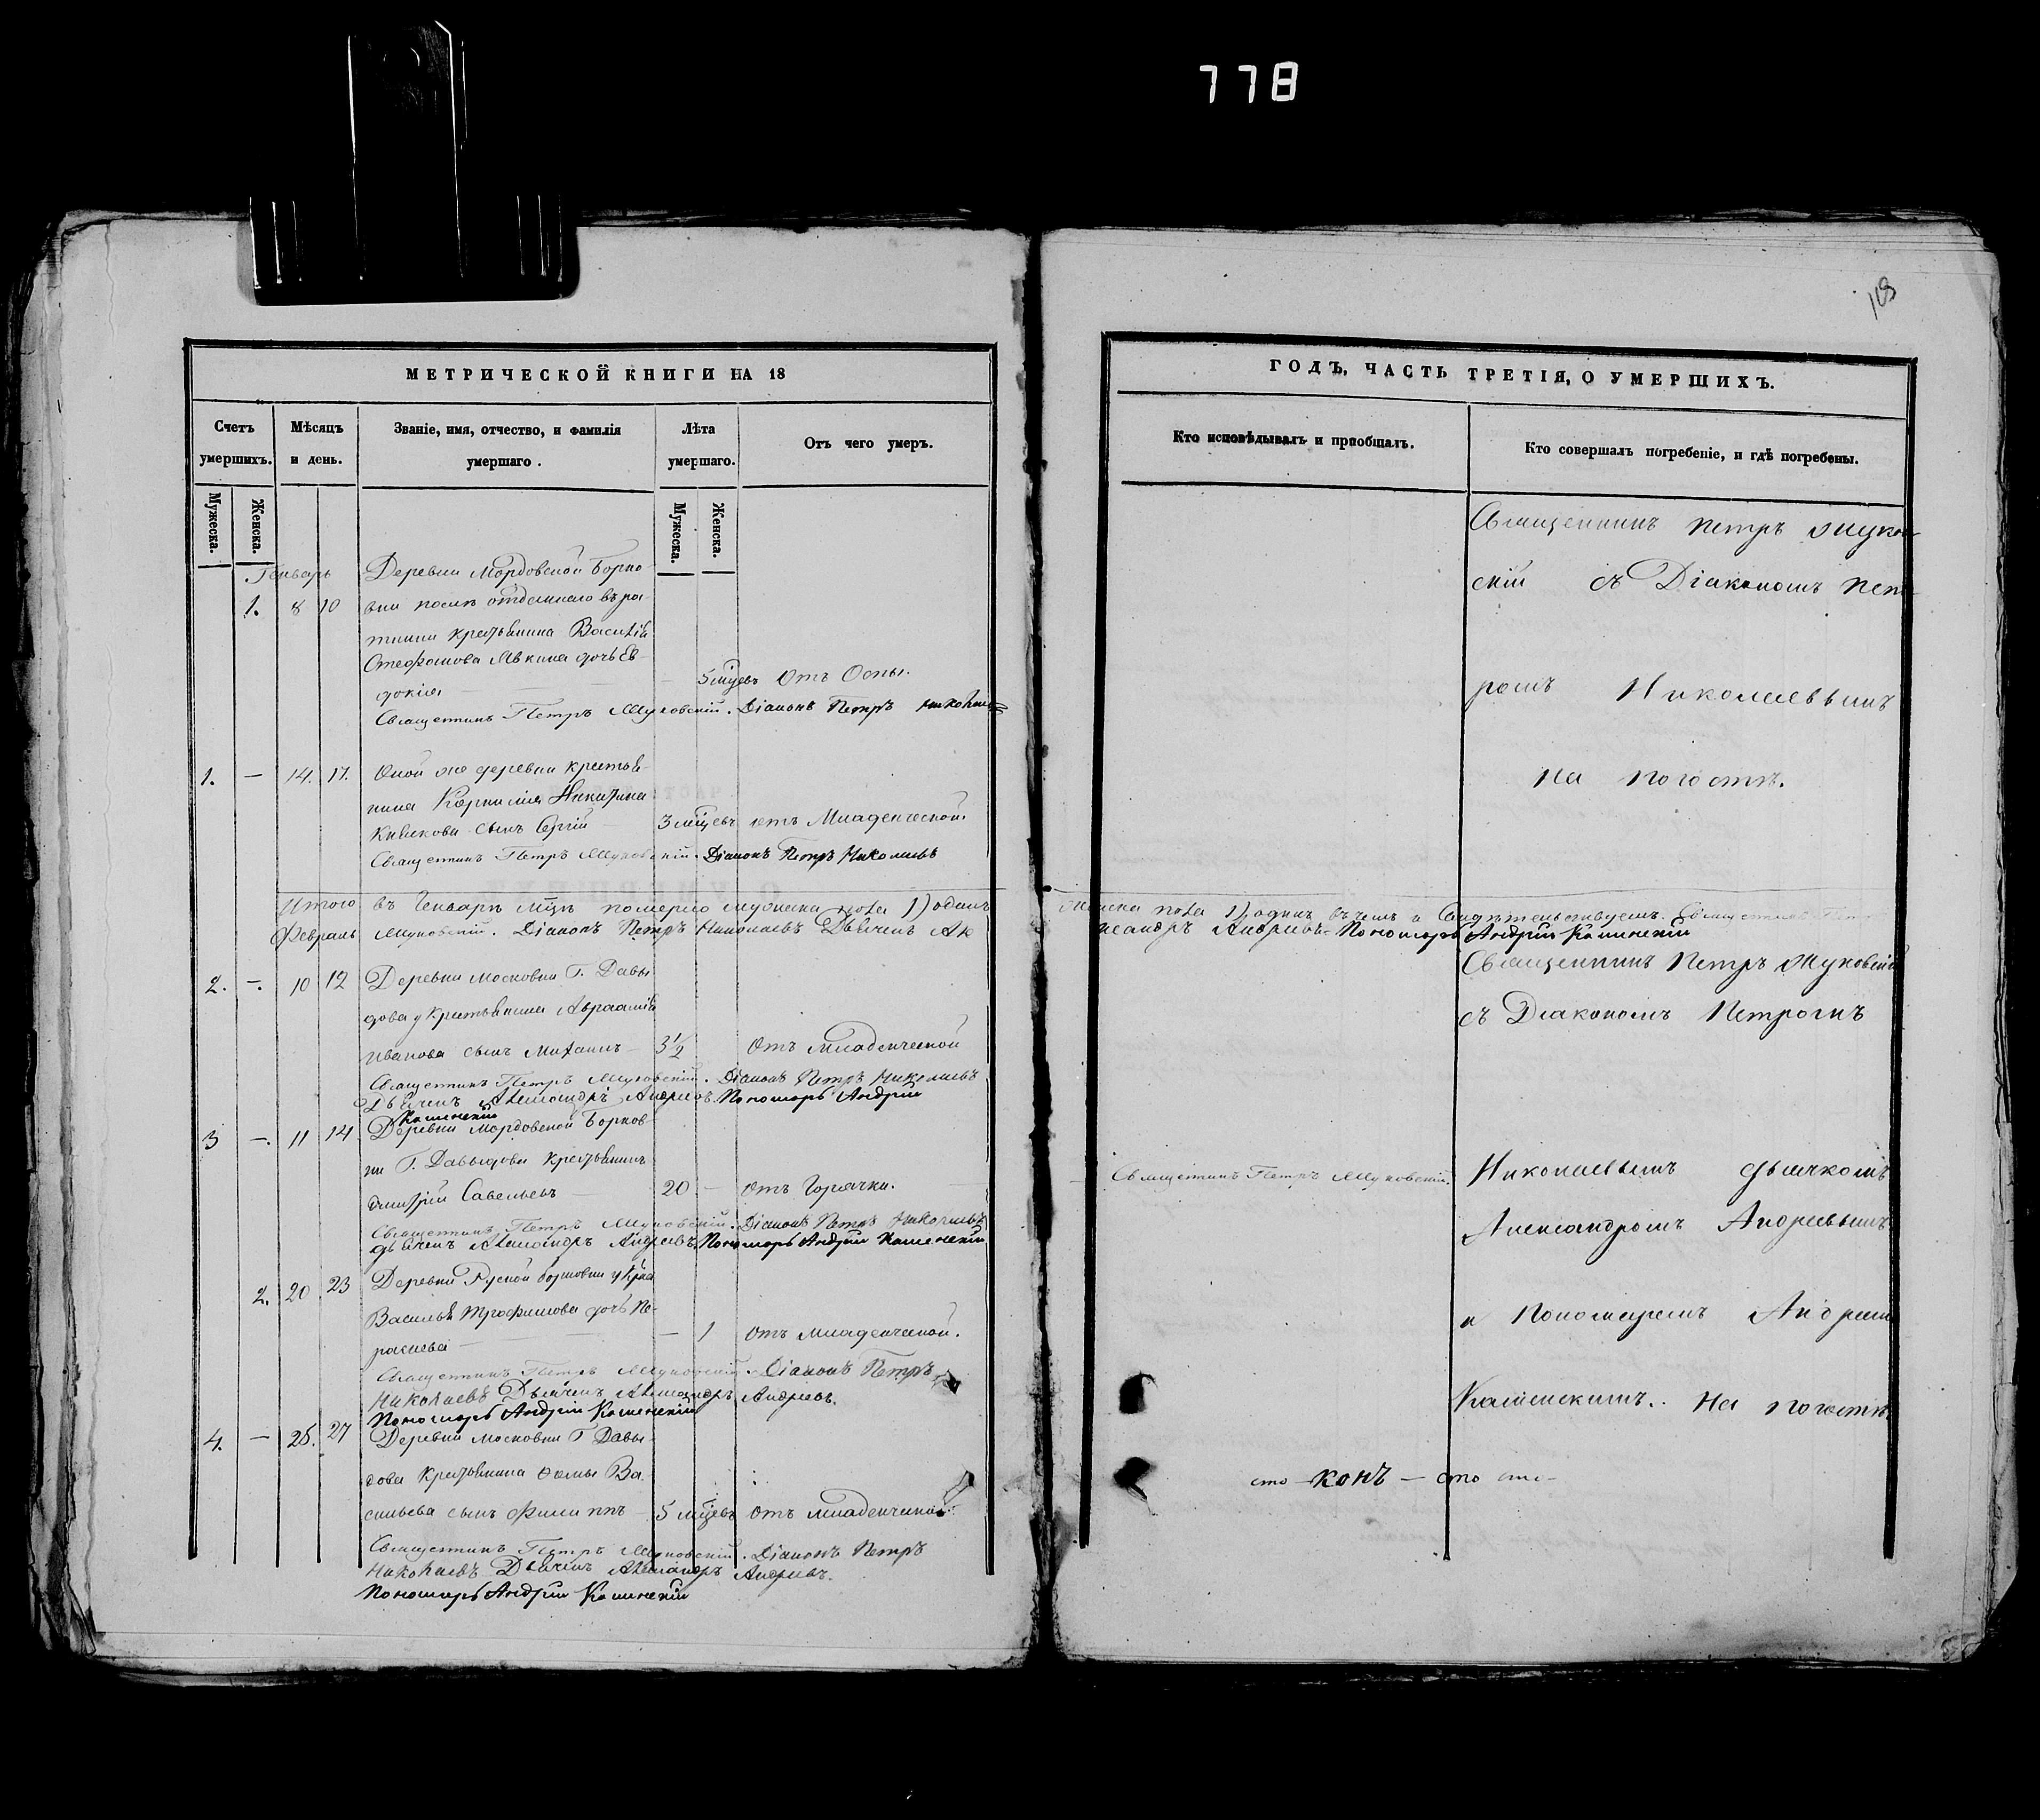 778
118
МЕТРИЧЕСКОЙ КНИГИ НА 18
Счетъ умершихъ.
Мѣсяцъ и день.
Званіе, имя, отчество, и фамилія умершаго.
Лѣта умершаго.
Отъ чего умеръ.
Мужеска.
Женска.
Мужеска.
Женска.
Генварь
Деревни Мордовской Борко-
1. 8 10 вки
крестьянина Василія
Стефанова дочь Ев-
докія — 5 мцевъ отъ Оспы.
Священникъ Петръ Жуковскій. Діаконъ Петръ Николаевъ
1. — 14. 17. Оной же деревни крестья-
нина Корнилія Никитина
сынъ Сергій 3 мцевъ отъ Младенческой.
Священникъ Петръ Жуковскій. Діаконъ Петръ Николаевъ
Итого въ Генварѣ мцѣ померло мужеска пола 1) одинъ
Февраль Жуковскій. Діаконъ Петръ Николаевъ Дьячекъ Але
2. —. 10 12 Деревни Московки Г. Давы
дова крестьянина Авраамія
Иванова сынъ Михаилъ — 3½ Отъ младенческой
Священникъ Петръ Жуковскій. Діаконъ Петръ Николаевъ
Дьячекъ Александръ Андреевъ. Пономарь Андрей
Каменскій
3 —. 11 14 Деревни Мордовской Борков-
ки Г. Давыдова крестьянинъ
Дмитрій Савельевъ — 20 — Отъ Горячки.
Священникъ Петръ Жуковскій. Діаконъ Петръ Николаевъ
Дьячекъ Александръ Андреевъ. Пономарь Андрей Каменскій
2. 20 23 Деревни Руской борковки
Василья Трофимова дочь Па-
раскева — — 1 отъ младенческой.
Священникъ Петръ Жуковскій. Діаконъ Петръ
Николаевъ Дьячекъ Александръ Андреевъ.
Пономарь Андрей Каменскій
4. — 25. 27 Деревни Московки Г Давы-
дова крестьянина Фомы Ва-
сильева сынъ Филиппъ — 5 мцевъ отъ младенческой
Священникъ Петръ Жуковскій. Діаконъ Петръ
Николаевъ Дьячекъ Александръ Андреевъ.
Пономарь Андрей Каменскій
ГОДЪ, ЧАСТЬ ТРЕТІЯ, О УМЕРШИХЪ.
Кто исповѣдывалъ и пріобщалъ.
Кто совершалъ погребеніе, и гдѣ погребены.
Священникъ Петръ Жуков-
скій съ Діакономъ Пет-
ромъ Николаевымъ
на погостѣ.
женска пола 1) одна, въ чемъ и свидѣтельствуемъ. Священникъ Петръ
ксандръ Андреевъ. Пономарь Андрей Каменскій
Священникъ Петръ Жуковскій
съ Діакономъ Петромъ
Священникъ Петръ Жуковскій.
Николаевымъ дьячкомъ
Александромъ Андреевымъ
и Пономаремъ Андреем
Каменскимъ. На погостѣ.
сто — конъ — сто